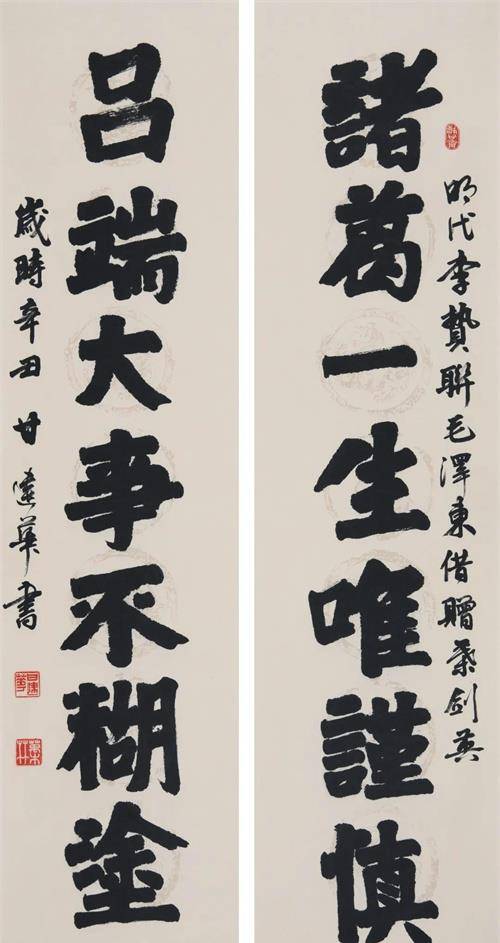 明代李贄聯毛澤東借贈葉劍英
諸葛一生唯謹慎
吕端大事不糊塗
歲時辛丑甘建華書